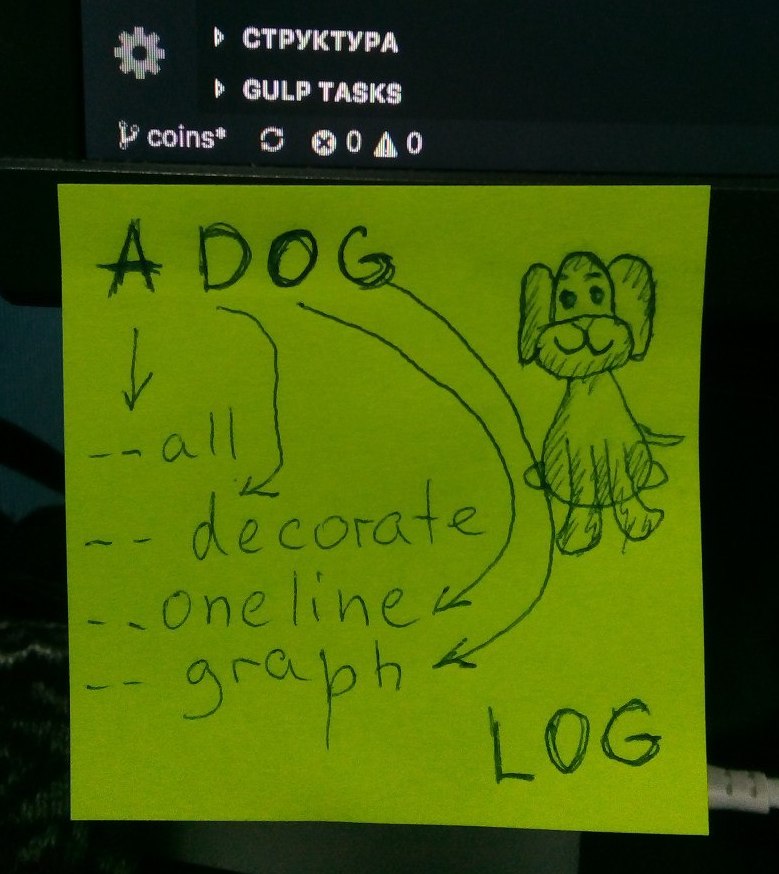 СТРУКТУРА
GULP TASKS
coins* 0 0
A DOG
--all
-- decorate
--oneline
-- graph
LOG